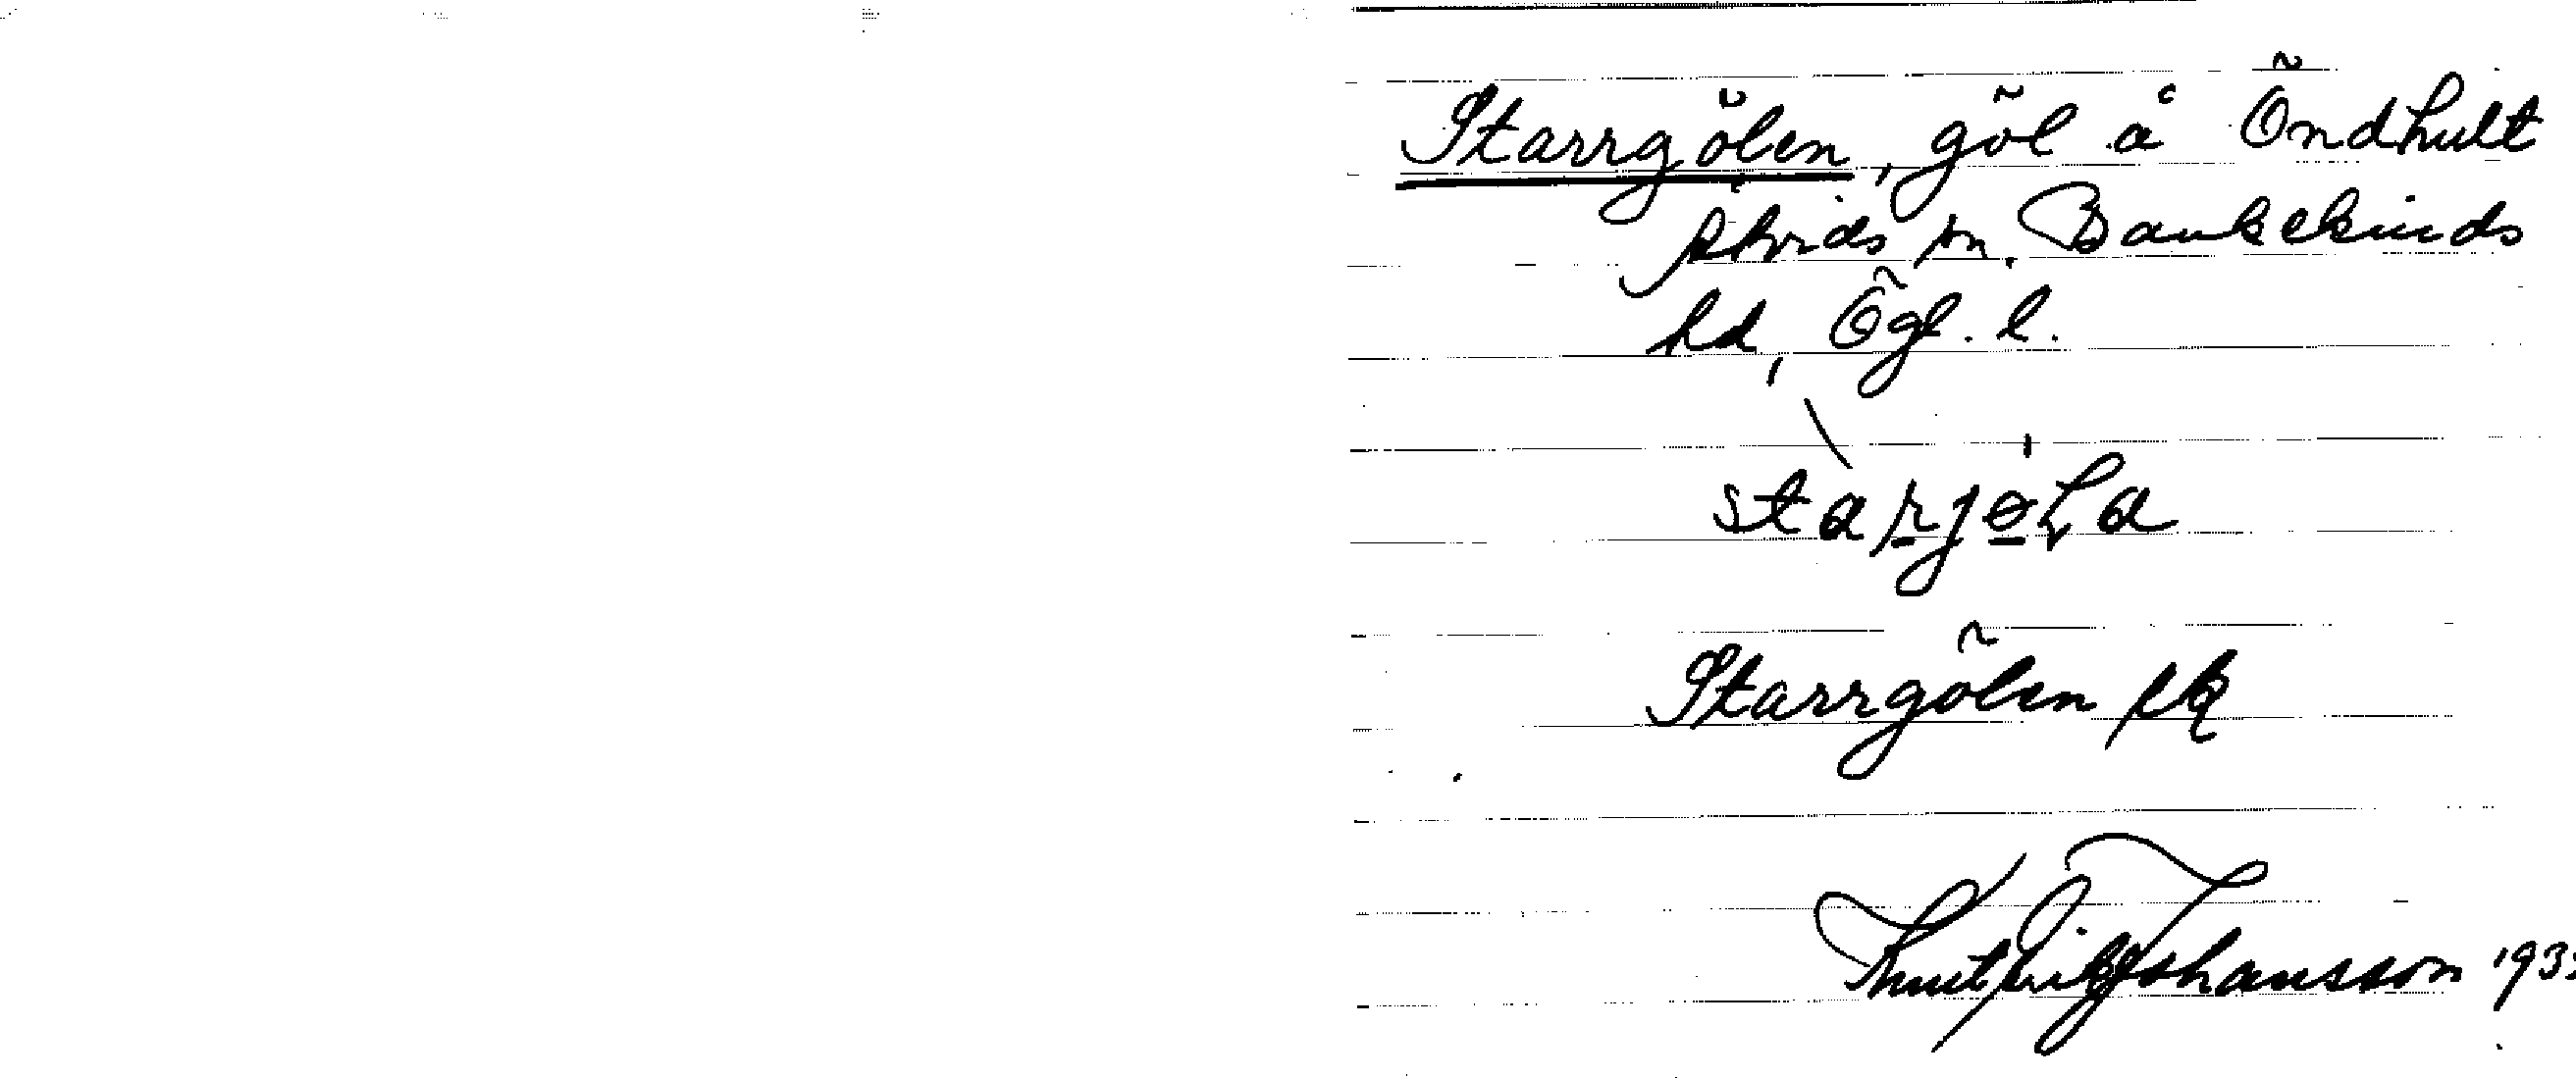 Starrgölen, göl å Öndhult
Åtvids sn. Bankekinds
hd, Ögl. l.
starjøla
Starrgölen ek
Knut Erik Johansson